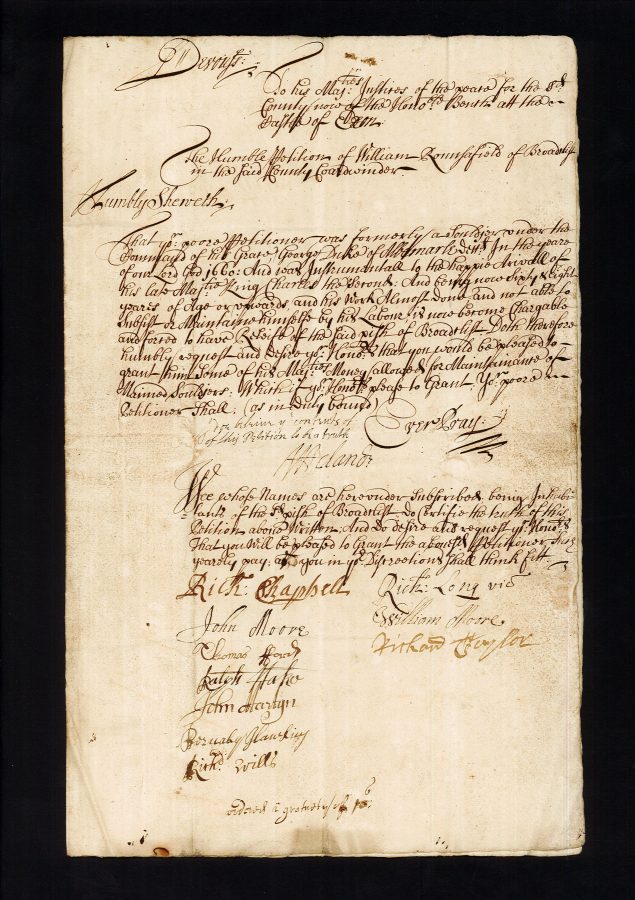 Devon ss:
To his Maj:ties Justices of the peace for the sd
County now of the Honoble Bench att the
Castle of Exon:
The Humble Petition of William Rounsafield of Broadclist
in the said County Coardwinder
Humbly Sheweth,
That yr: poore Petitioner was formerly a Souldier under the
Command of his Grace, George Duke of Albemarle In the yeare
of our Lord God 1660: And was Instrumentall to the happie Arivall of
his late Maj:tie King Charles the Second: And being now Sixty & Eight
yeares of Age or upwards, and his Work Almost done and not able to
Subsist or Maintaine himselfe by his Labour, is now become Chargable
and forced to have Releife of the said pish of Broadclist Doth therefore
humbly request and desire yr: Honrs that you would be pleased to
grant him Some of his Maj:ties Money (allowed for Maintainance of
Maimed Souldiers: Which if yr: Honrs please to Grant, Yr: poore
Petitioner Shall: (as in Duty bound)
Ever Pray:
I believe ye contents of
of this Petition to be a truth
Acland
Wee whose Names are hereunder Subscribed being Inhabi-
tants of the sd pish of Broadclist do Certifie the truth of this
Petition above Written: And do desire and request yr: Honrs
That you Will be pleased to Grant the abovesd Petitioner Such
yearely pay: as you in yr: Discreations shall think fitt.
Rich: Chaphell
Rich: Long vic
John Moore
William Moore
Thomas
Richard Taylor
Ralph Hake
John Martyn
Bernaby Hawkins
Richd Wills
ordered a gratuety of